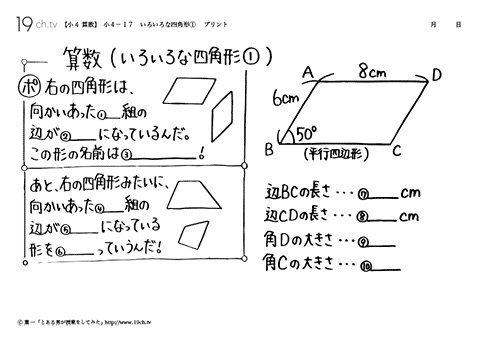 19ch.tv 【小4算数】 小4－17 いろいろな四角形① プリント 月 日
算数(いろいろな四角形①)
ポ 右の四角形は、
向かいあった①＿組の
辺が②＿＿になっているんだ。
この形の名前は③＿＿＿＿!
あと、右の四角形みたいに、
向かいあった④＿＿組の
辺が⑤＿＿になっている
形を⑥＿＿っていうんだ!
A 8cm D
6cm
50°
B C
(平行四辺形)
辺BCの長さ…⑦＿＿cm
辺CDの長さ…⑧＿＿cm
角Dの大きさ…⑨＿＿
角Cの大きさ…⑩＿＿
© 葉一「とある男が授業をしてみた」http://www.19ch.tv